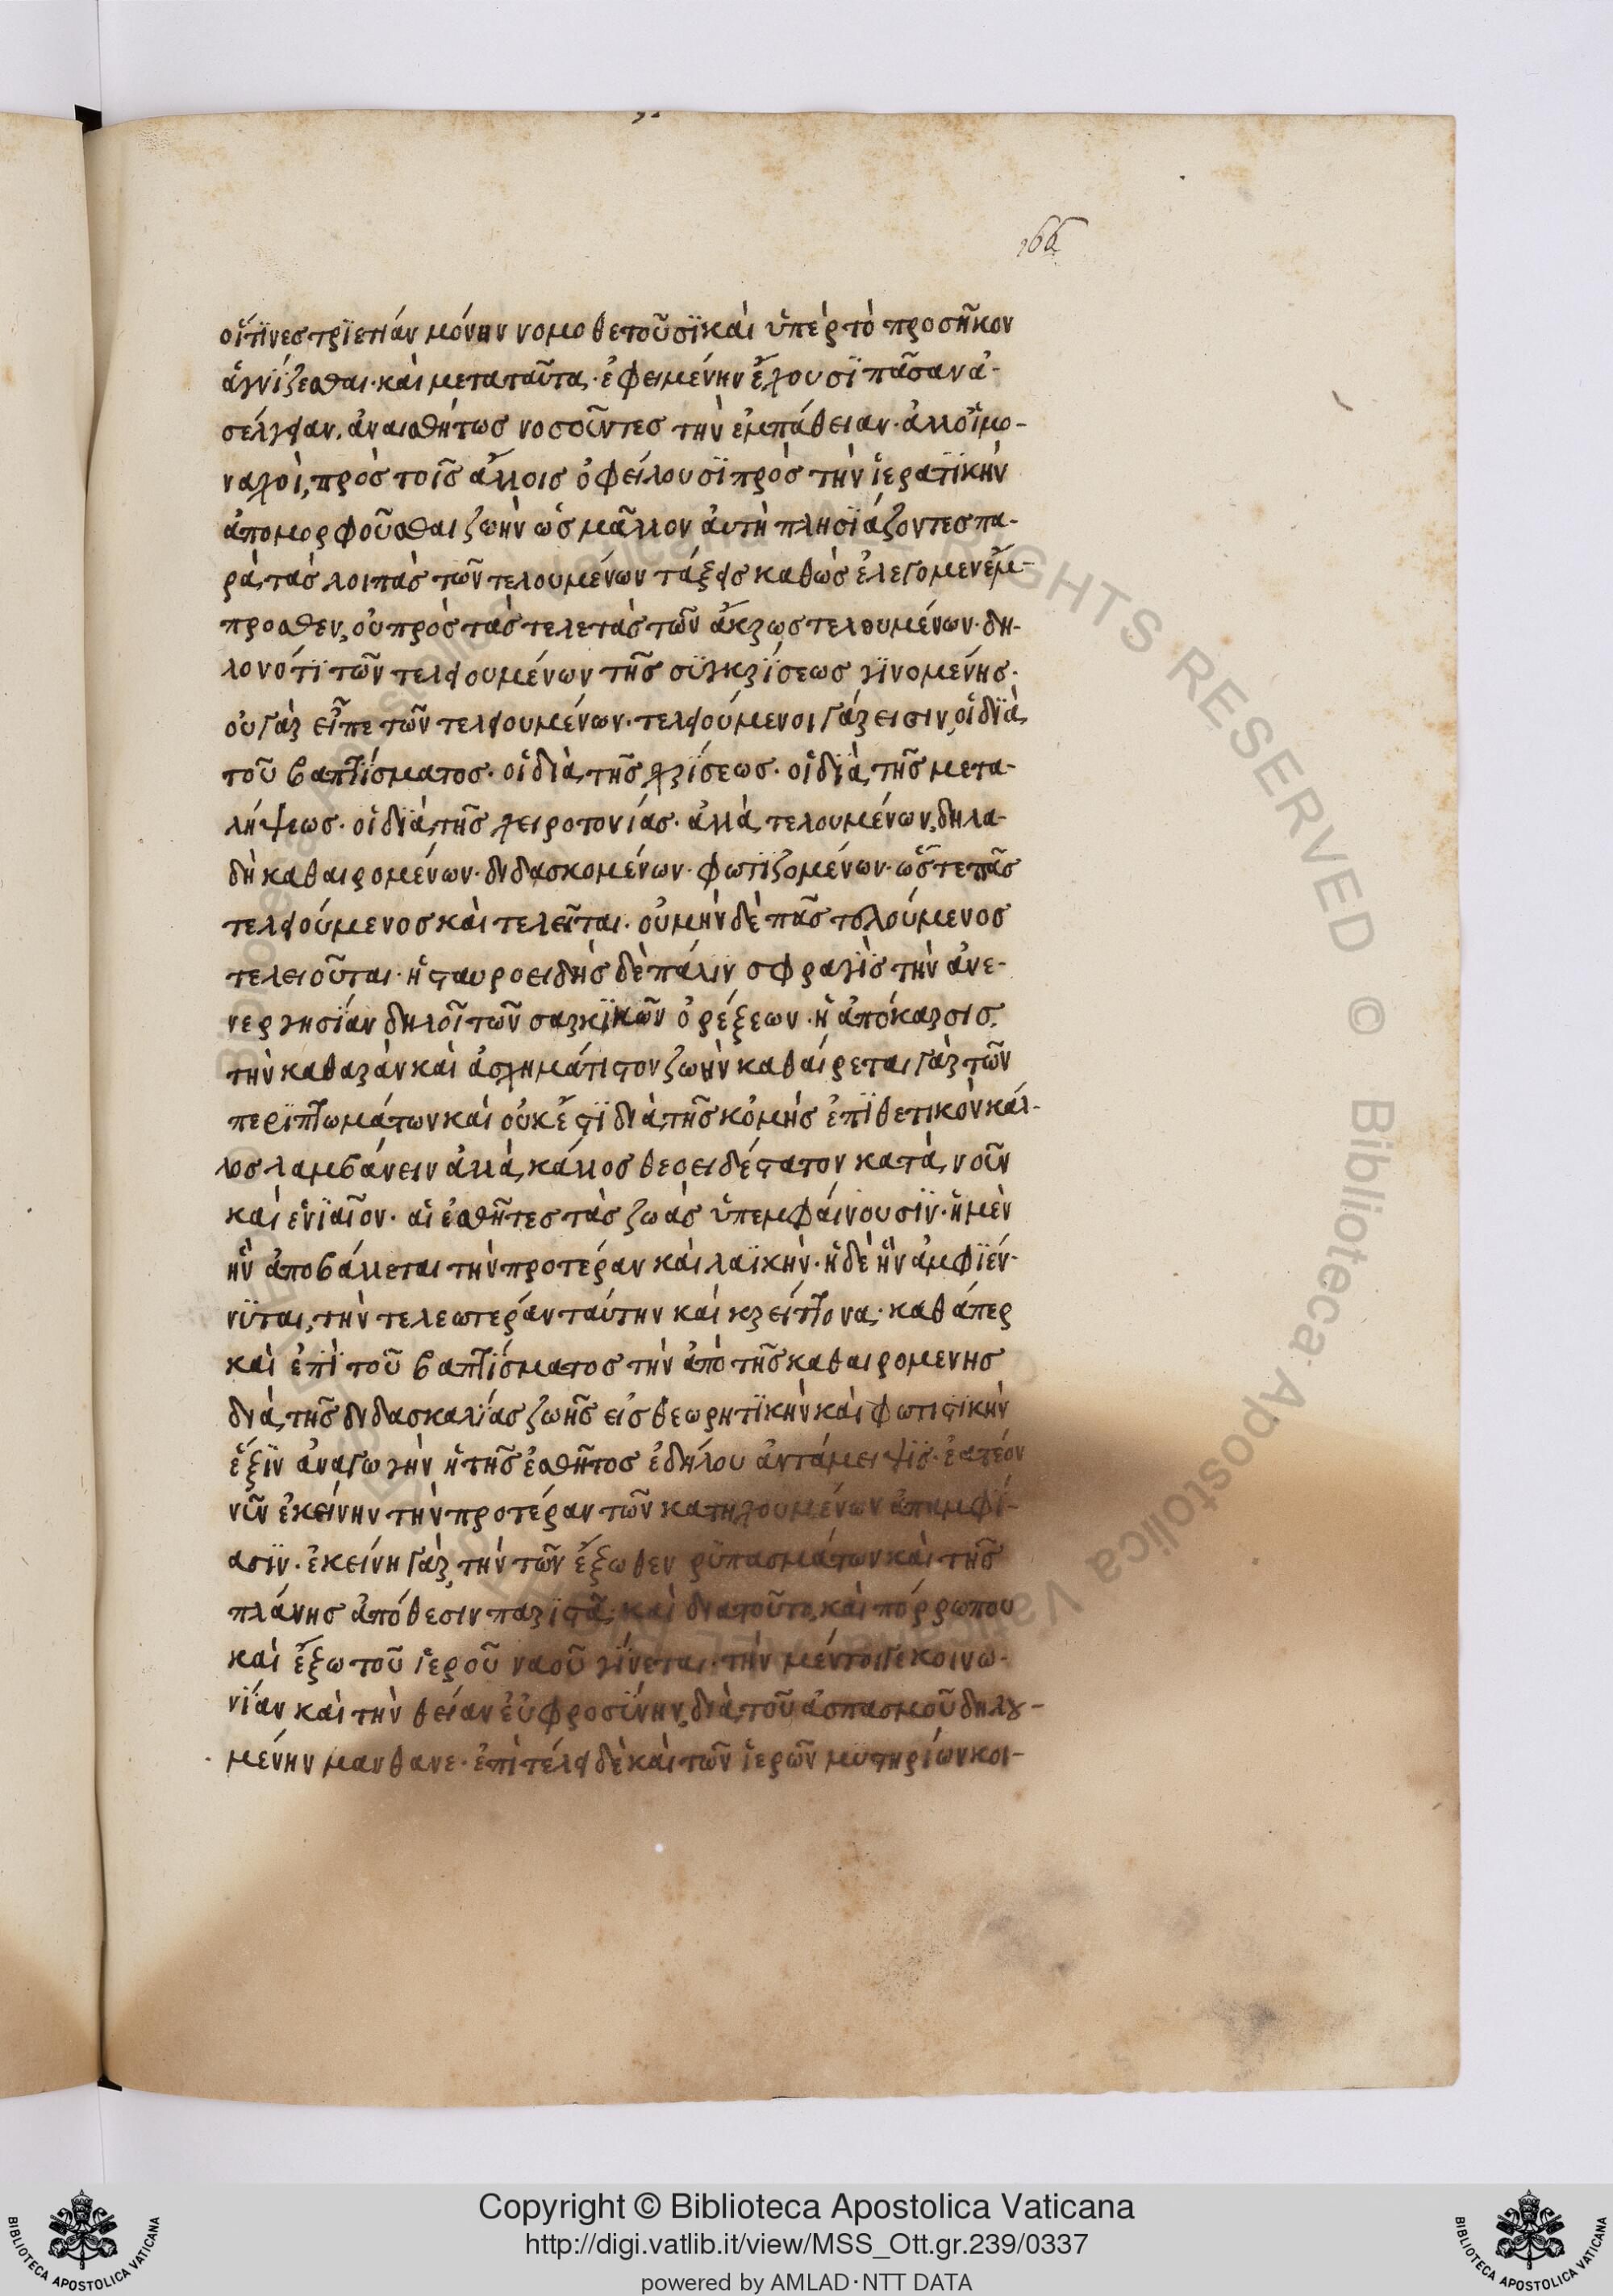 166
οἵτινες τριετίαν μόνην νομοθετοῦσι καὶ ὑπὲρ τὸ προσῆκον
ἁγνίζεσθαι· καὶ μετα ταῦτα· ἐφειμένην ἔχουσι πᾶσαν ἀ-
σέλγειαν. ἀναισθήτως νοσοῦντες τὴν ἐμπάθειαν· ἀλλ' οἱ μο-
ναχοὶ, πρὸς τοῖς ἄλλοις ὀφείλουσι πρὸς τὴν ἱερατικὴν
ἀπομορφοῦσθαι ζωὴν ὡς μᾶλλον ἀυτῆ πλησιάζοντες πα-
ρὰ τὰς λοιπὰς τῶν τελουμένων τάξεις καθὼς ἐλέγομεν ἔμ-
προσθεν, οὐ πρὸς τὰς τελετὰς τῶν ἄκρως τελουμένων· δη-
λονότι τῶν τελειουμένων τῆς συγκρίσεως γινομένης·
οὐ γὰρ εἶπε τῶν τελειουμένων· τελειούμενοι γάρ εισιν, οἱ διὰ
τοῦ βαπτίσματος· οἱ διὰ τῆς χρίσεως· οἱ διὰ τῆς μετα-
λήψεως· οἱ διὰ τῆς χειροτονίας· ἀλλὰ τελουμένων, δηλα-
δὴ καθαιρομένων· διδασκομένων· φωτιζομένων· ὥστε πᾶς
τελειούμενος καὶ τελεῖται· οὐ μὴν δὲ πᾶς τελούμενος
τελειοῦται· ἡ σταυροειδὴς δὲ πάλιν σφραγὶς τὴν ἀνε-
νεργησίαν δηλοῖ τῶν σαρκικῶν ὀρέξεων· ἡ ἀπόκαρσις
τὴν καθαρὰν καὶ ἀσχημάτιστον ζωὴν καθαίρεται γὰρ τῶν
περιττωμάτων καὶ οὐκ ἔστι διὰ τῆς κόμης ἐπιθετικὸν κάλ-
λος λαμβάνειν ἀλλὰ κάλλος θεοειδέστατον κατὰ νοῦν
καὶ ἑνιαῖον· αἱ ἐσθῆτες τὰς ζωὰς ὑπεμφαίνουσιν· ἡ μὲν
ἣν ἀποβάλλεται τὴν προτέραν καὶ λαϊκὴν· ἡ δὲ ἣν ἀμφιέν-
νυται, τὴν τελεωτέραν ταύτην καὶ κρείττονα· καθάπερ
καὶ ἐπὶ τοῦ βαπτίσματος τὴν ἀπὸ τῆς καθαιρομενης
διὰ τῆς διδασκαλίας ζωῆς εἰς θεωρητικὴν καὶ φωτιστικὴν
ἕξιν ἀναγωγὴν ἡ τῆς ἐσθῆτος ἐδήλου ἀντάμειψις· ἐατέον
νῦν ἐκείνην τὴν προτέραν τῶν κατηχουμένων ἀπημφί-
ασιν· ἐκείνη γὰρ τὴν τῶν ἔξωθεν ρυπασμάτων καὶ τῆς
πλάνης ἀπόθεσιν παριστᾶ· καὶ διατοῦτο, καὶ πόρρωπου
καὶ ἔξω τοῦ ἱεροῦ ναοῦ γίνεται· τὴν μέντοιγε κοινω-
νίαν καὶ τὴν θείαν ἐυφροσύνην, διὰ τοῦ ἀσπασμοῦ δηλου-
μένην μανθανε· ἐπὶ τέλει δὲ καὶ τῶν ἱερῶν μυστηρίων κοι-
Copyright © Biblioteca Apostolica Vaticana
http://digi.vatlib.it/view/MSS_Ott.gr.239/0337
powered by AMLAD·NTT DATA